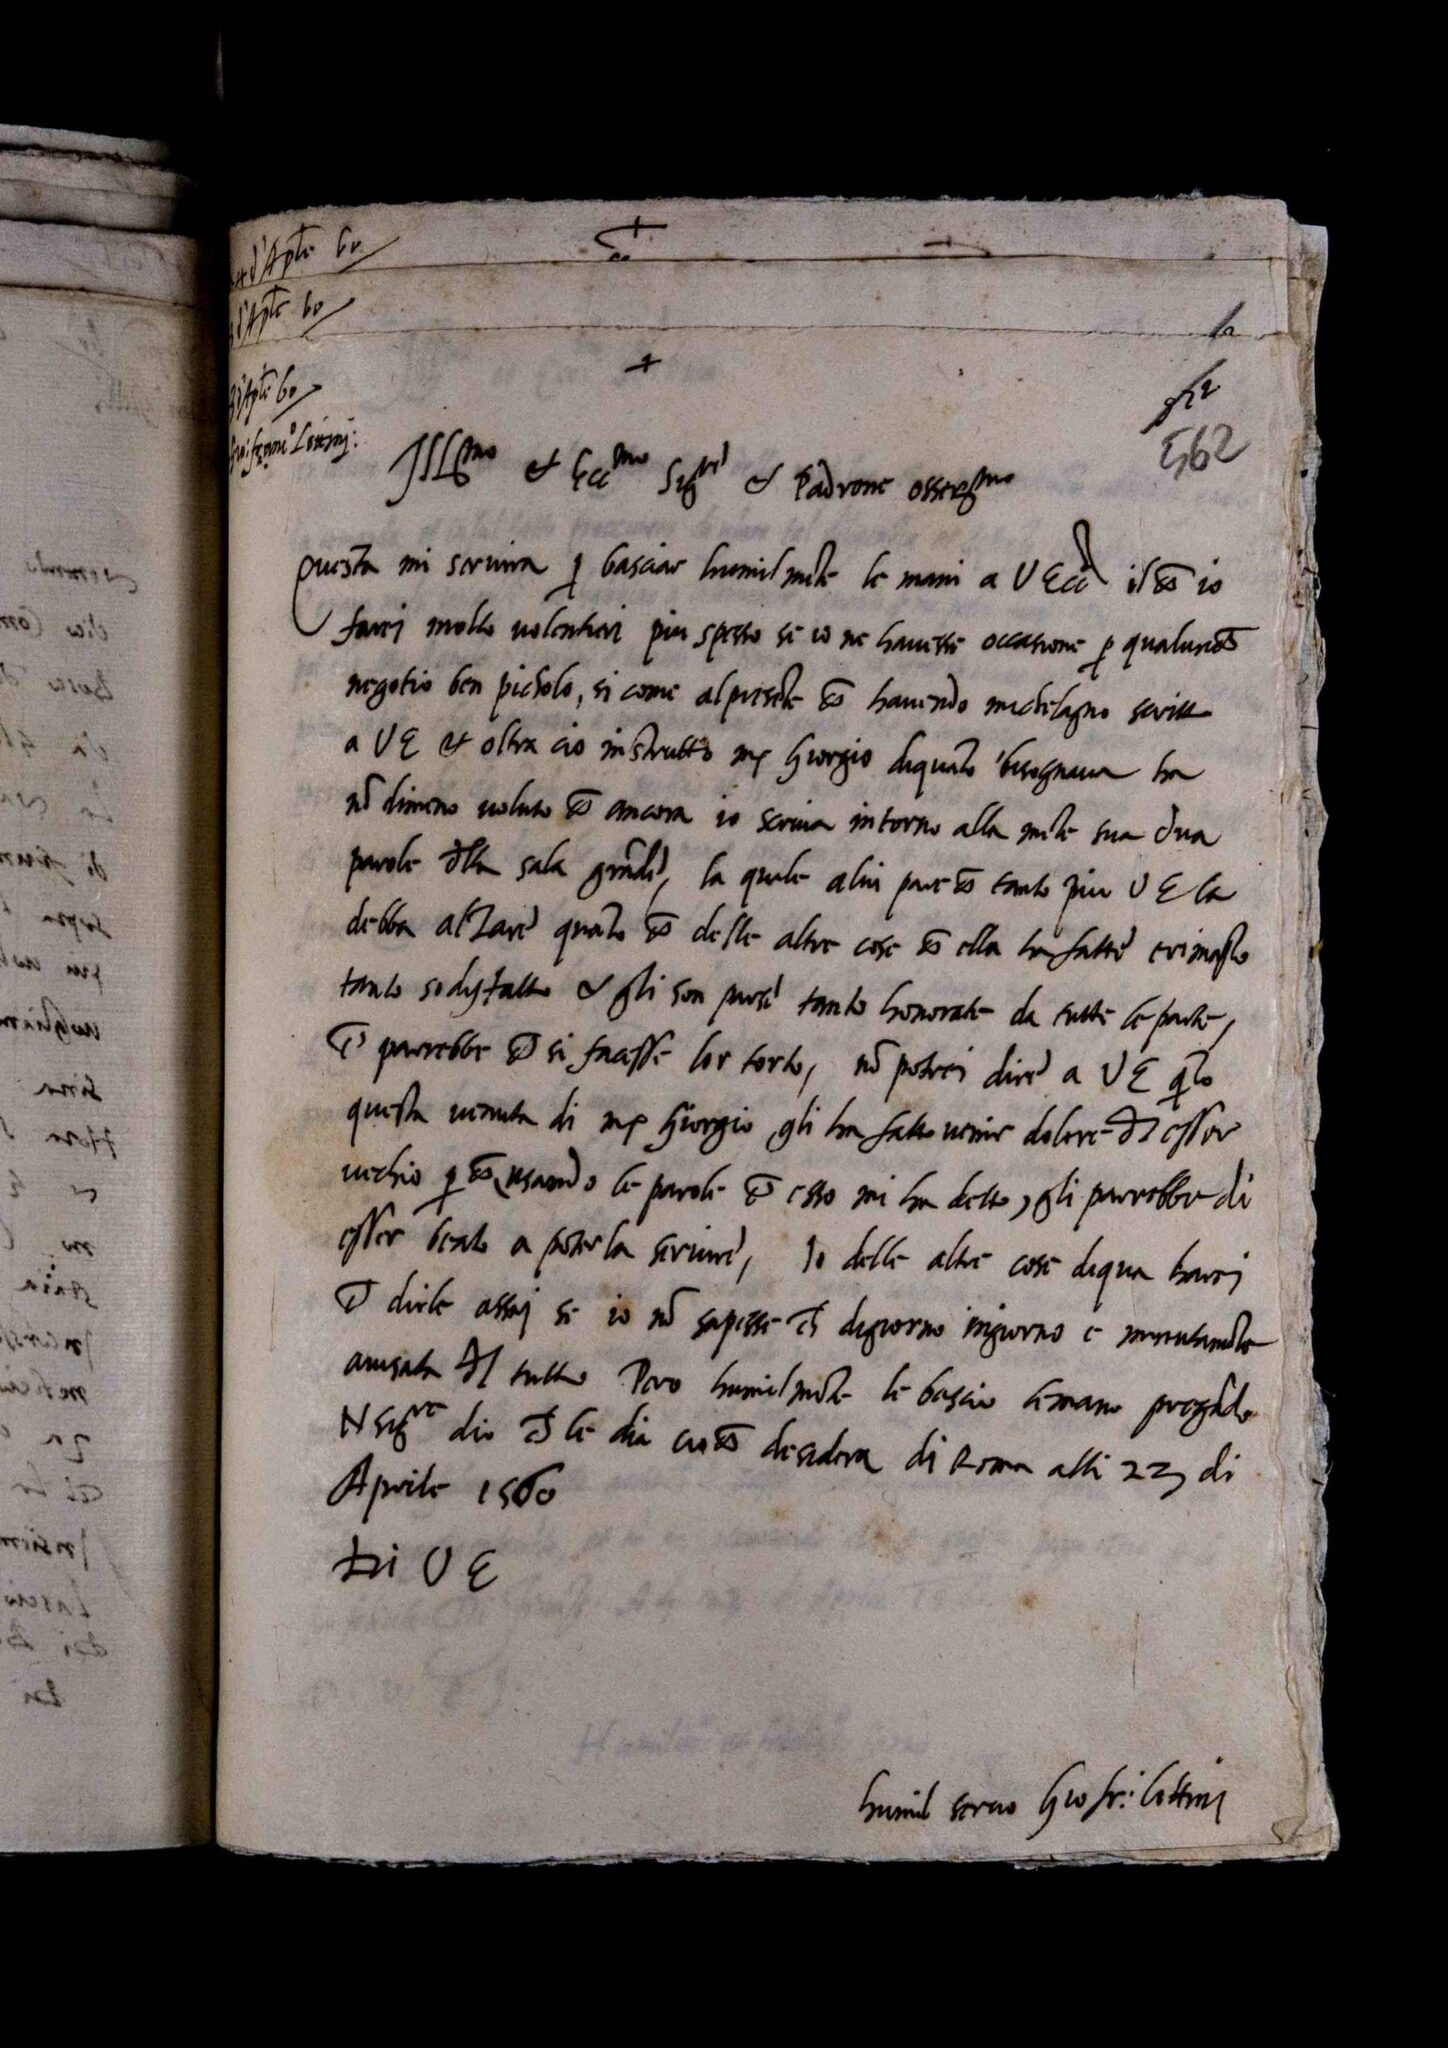 d'Aple 60
d'Aple 60
23 d'Aple 60
Gio: franc.o Lottini:
+
562
Ill.mo et Ecc.mo Sig.re et Padrone osser.mo
Questa mi servira p basciar humilmẽte le mani a V Ecc il ch̃ io
farei molto volentieri piu spesso se io ne havesse occasione p qualunch̃
negotio ben picholo, si come al presẽte ch̃ havendo michelagno scritto
a V E et oltra cio instrutto m Giorgio di quãto bisognava ha
nõ dimeno voluto ch̃ ancora io scriva intorno alla mẽte sua dua
parole dlla sala grãde, la quale a lui pare ch̃ tanto piu V E la
debba alzare quãto ch̃ delle altre cose ch̃ ella ha fatte e rimasto
tanto sodisfatto et gli son parse tanto honorate da tutte le parte,
ch̃ parrebbe ch̃ si facesse lor torto, nõ potrei dire a V E q̃to
questa venuta di m Giorgio gli ha fatto venir dolore dl esser
vechio p ch̃, usando le parole ch̃ esso mi ha detto, gli parrebbe di
esser beato a poterla servire, Io delle altre cose di qua harei
ch̃ dirle assai se io nõ sapesse ch̃ di giorno in giorno e minutamẽte
avisata dl tutto Pero humilmẽte le bascio le mano pregãdo
N Sig.re dio ch̃ le dia cio ch̃ desidera di Roma alli 23 di
Aprile 1560
Di V E
humil servo Gio fr: Lottini